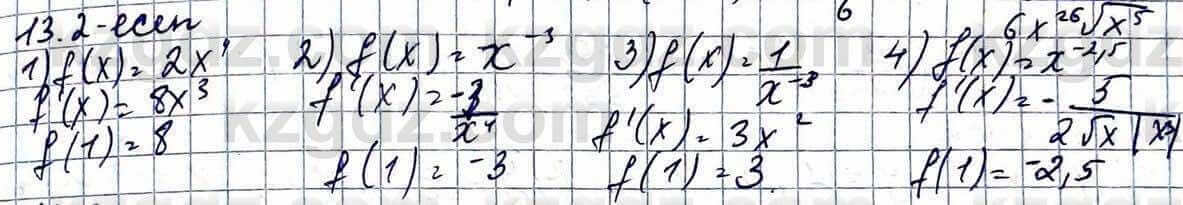 6
6x²⁶√x⁵
13.2-есеп
1) f(x) = 2x⁴
f'(x) = 8x³
f(1) = 8
2) f(x) = x⁻³
f'(x) = -3/x⁴
f'(1) = -3
3) f(x) = 1/x⁻³
f'(x) = 3x²
f(1) = 3
4) f(x) = x⁻²,⁵
f'(x) = - 5/2√x |x³|
f(1) = -2,5